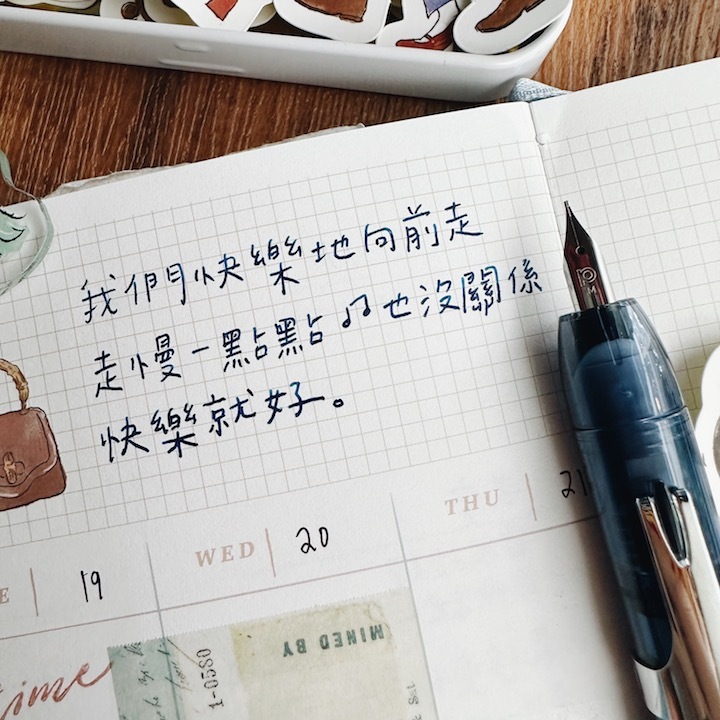 我們快樂地向前走
走慢一點點♫也沒關係
快樂就好。
19
WED 20
THU 21
time
MINED BY
1-0580
M